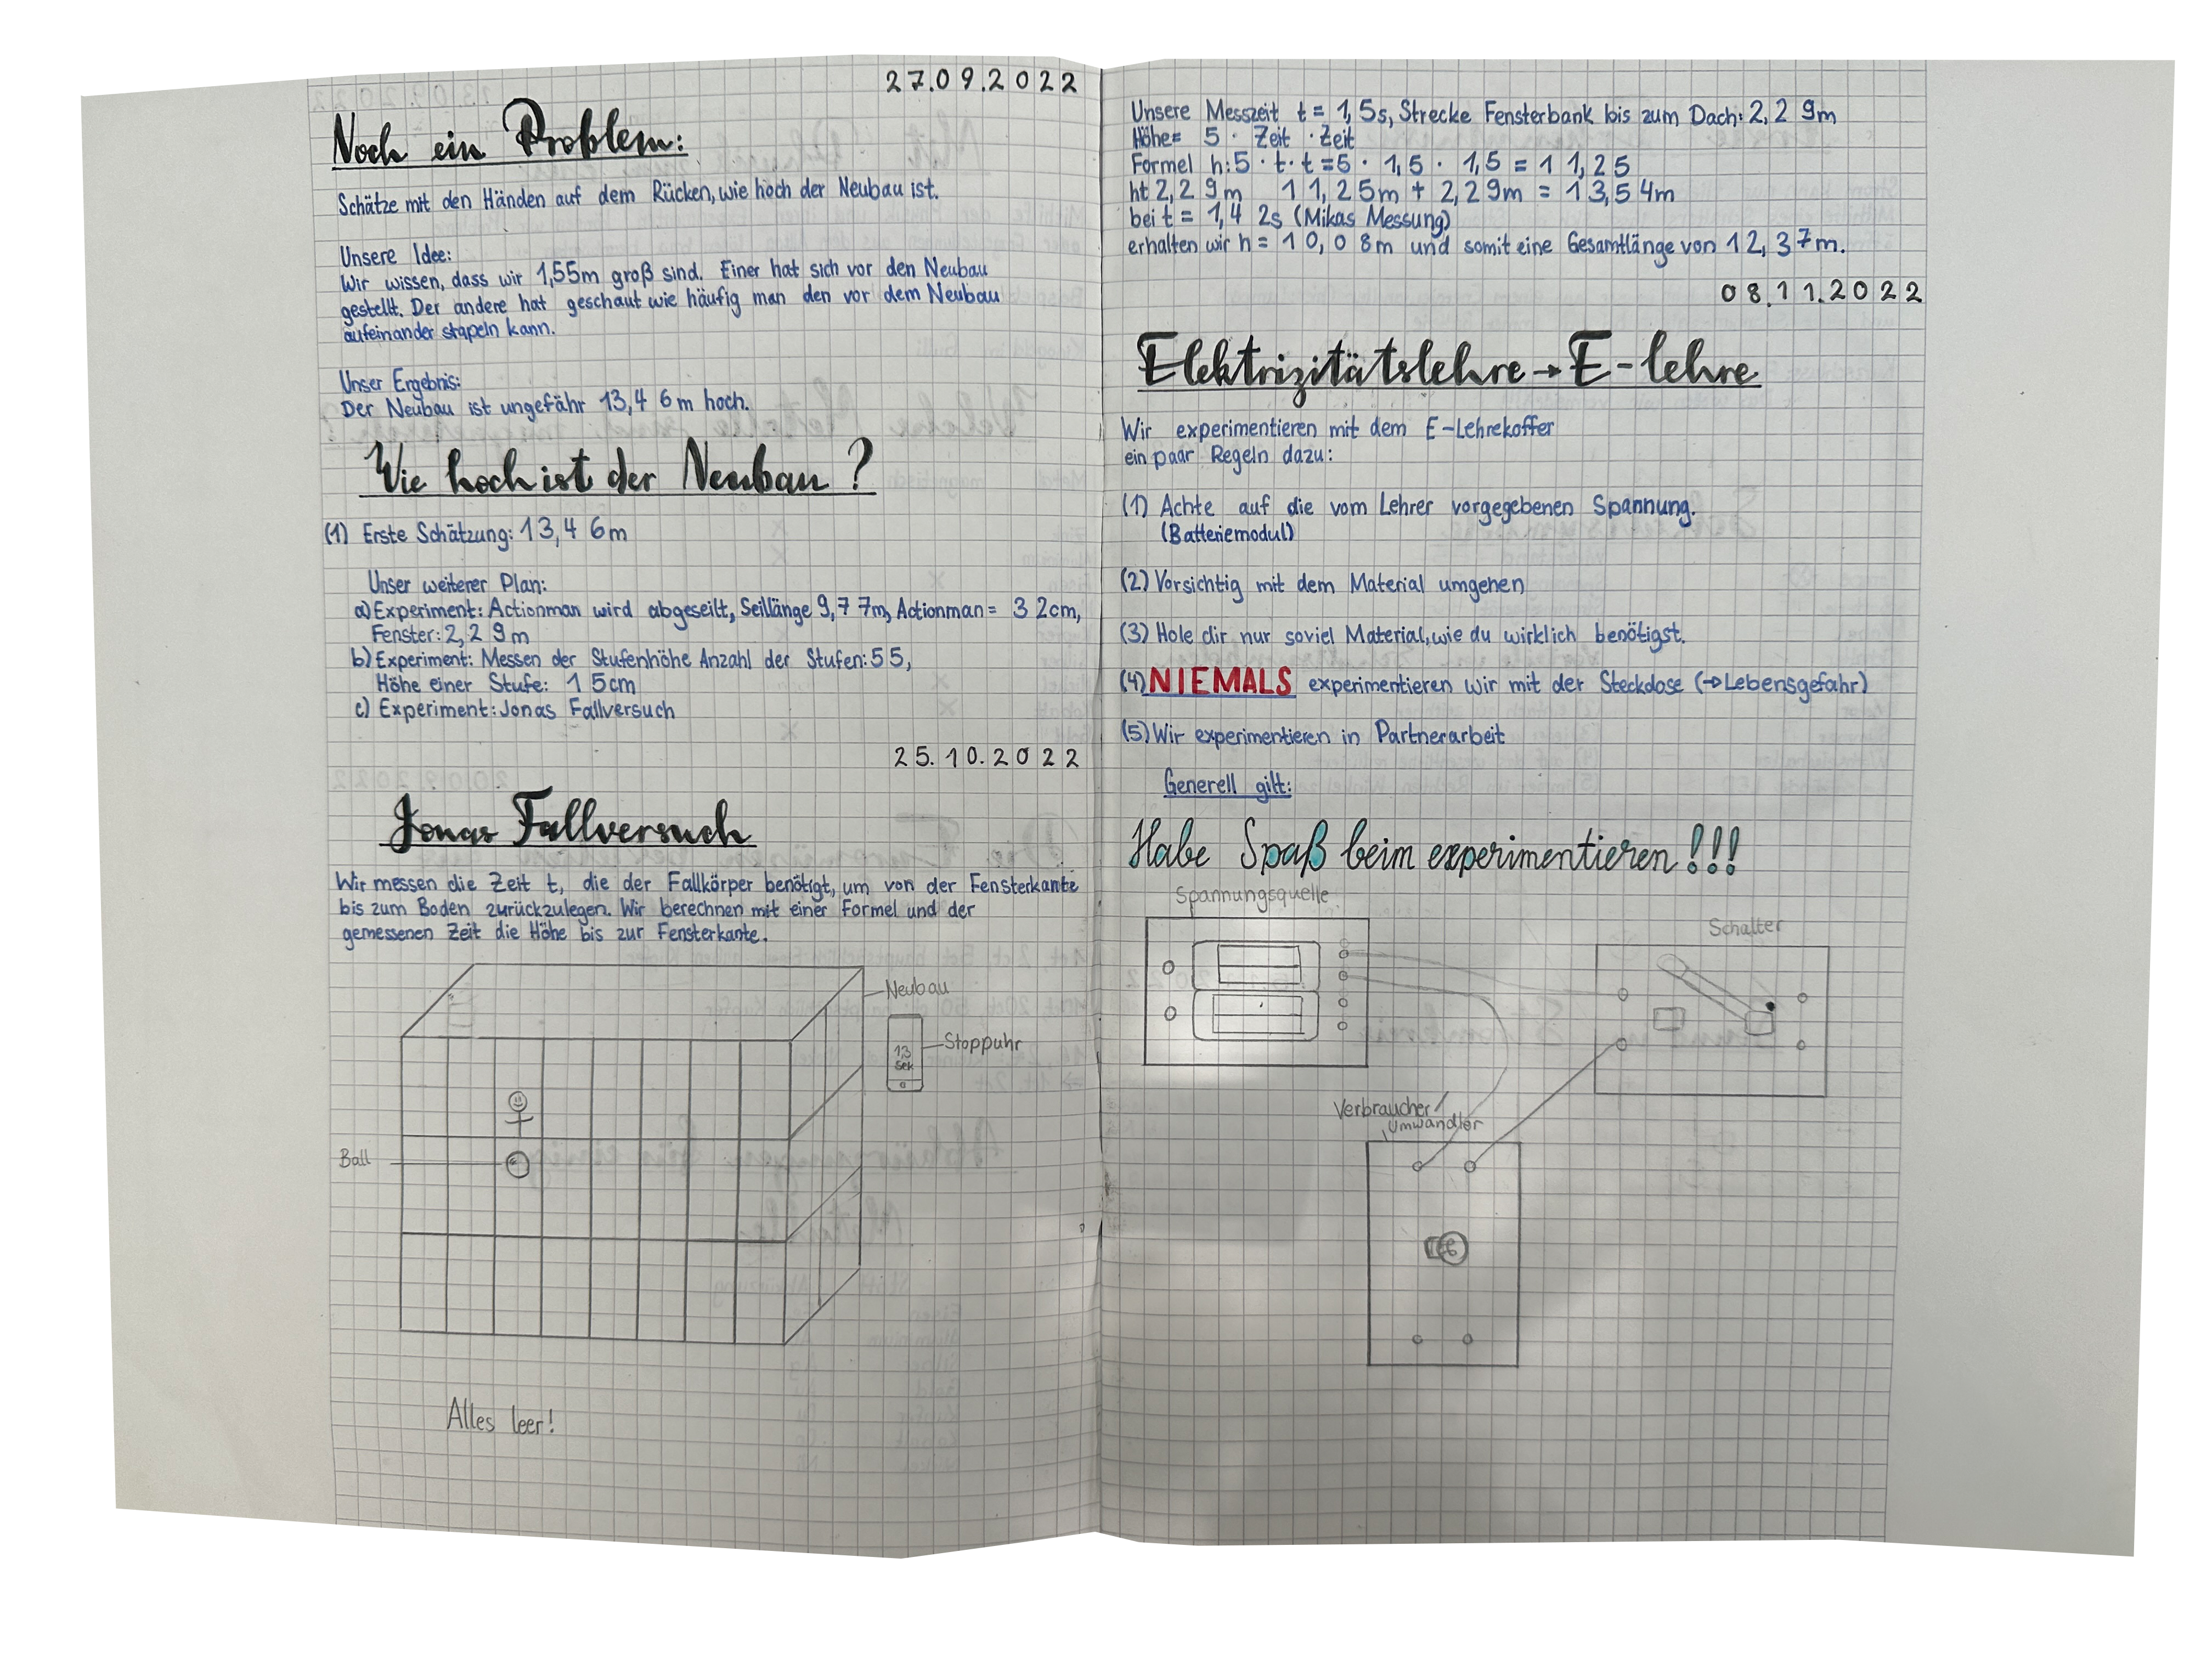 27.09.2022
Noch ein Problem:
Schätze mit den Händen auf dem Rücken, wie hoch der Neubau ist.
Unsere Idee:
Wir wissen, dass wir 1,55m groß sind. Einer hat sich vor den Neubau
gestellt. Der andere hat geschaut wie häufig man den vor dem Neubau
aufeinander stapeln kann.
Unser Ergebnis:
Der Neubau ist ungefähr 13,46m hoch.
Wie hoch ist der Neubau?
(1) Erste Schätzung: 13,46m
Unser weiterer Plan:
a) Experiment: Actionman wird abgeseilt, Seillänge 9,77m, Actionman = 32cm,
Fenster: 2,29m
b) Experiment: Messen der Stufenhöhe Anzahl der Stufen: 55,
Höhe einer Stufe: 15cm
c) Experiment: Jonas Fallversuch
25.10.2022
Jonas Fallversuch
Wir messen die Zeit t, die der Fallkörper benötigt, um von der Fensterkante
bis zum Boden zurückzulegen. Wir berechnen mit einer Formel und der
gemessenen Zeit die Höhe bis zur Fensterkante.
Neubau
Stoppuhr
1,3
Sek
Ball
Alles leer!
Unsere Messzeit t = 1,5s, Strecke Fensterbank bis zum Dach: 2,29m
Höhe = 5 · Zeit · Zeit
Formel h: 5 · t · t = 5 · 1,5 · 1,5 = 11,25
h+ 2,29m 11,25m + 2,29m = 13,54m
bei t = 1,42s (Mikas Messung)
erhalten wir h = 10,08m und somit eine Gesamtlänge von 12,37m.
08.11.2022
Elektrizitätslehre → E-lehre
Wir experimentieren mit dem E-Lehrekoffer
ein paar Regeln dazu:
(1) Achte auf die vom Lehrer vorgegebenen Spannung.
(Batteriemodul)
(2) Vorsichtig mit dem Material umgehen
(3) Hole dir nur soviel Material, wie du wirklich benötigst.
(4) NIEMALS experimentieren wir mit der Steckdose (→ Lebensgefahr)
(5) Wir experimentieren in Partnerarbeit
Generell gilt:
Habe Spaß beim experimentieren!!!
Spannungsquelle
Schalter
Verbraucher/
Umwandler